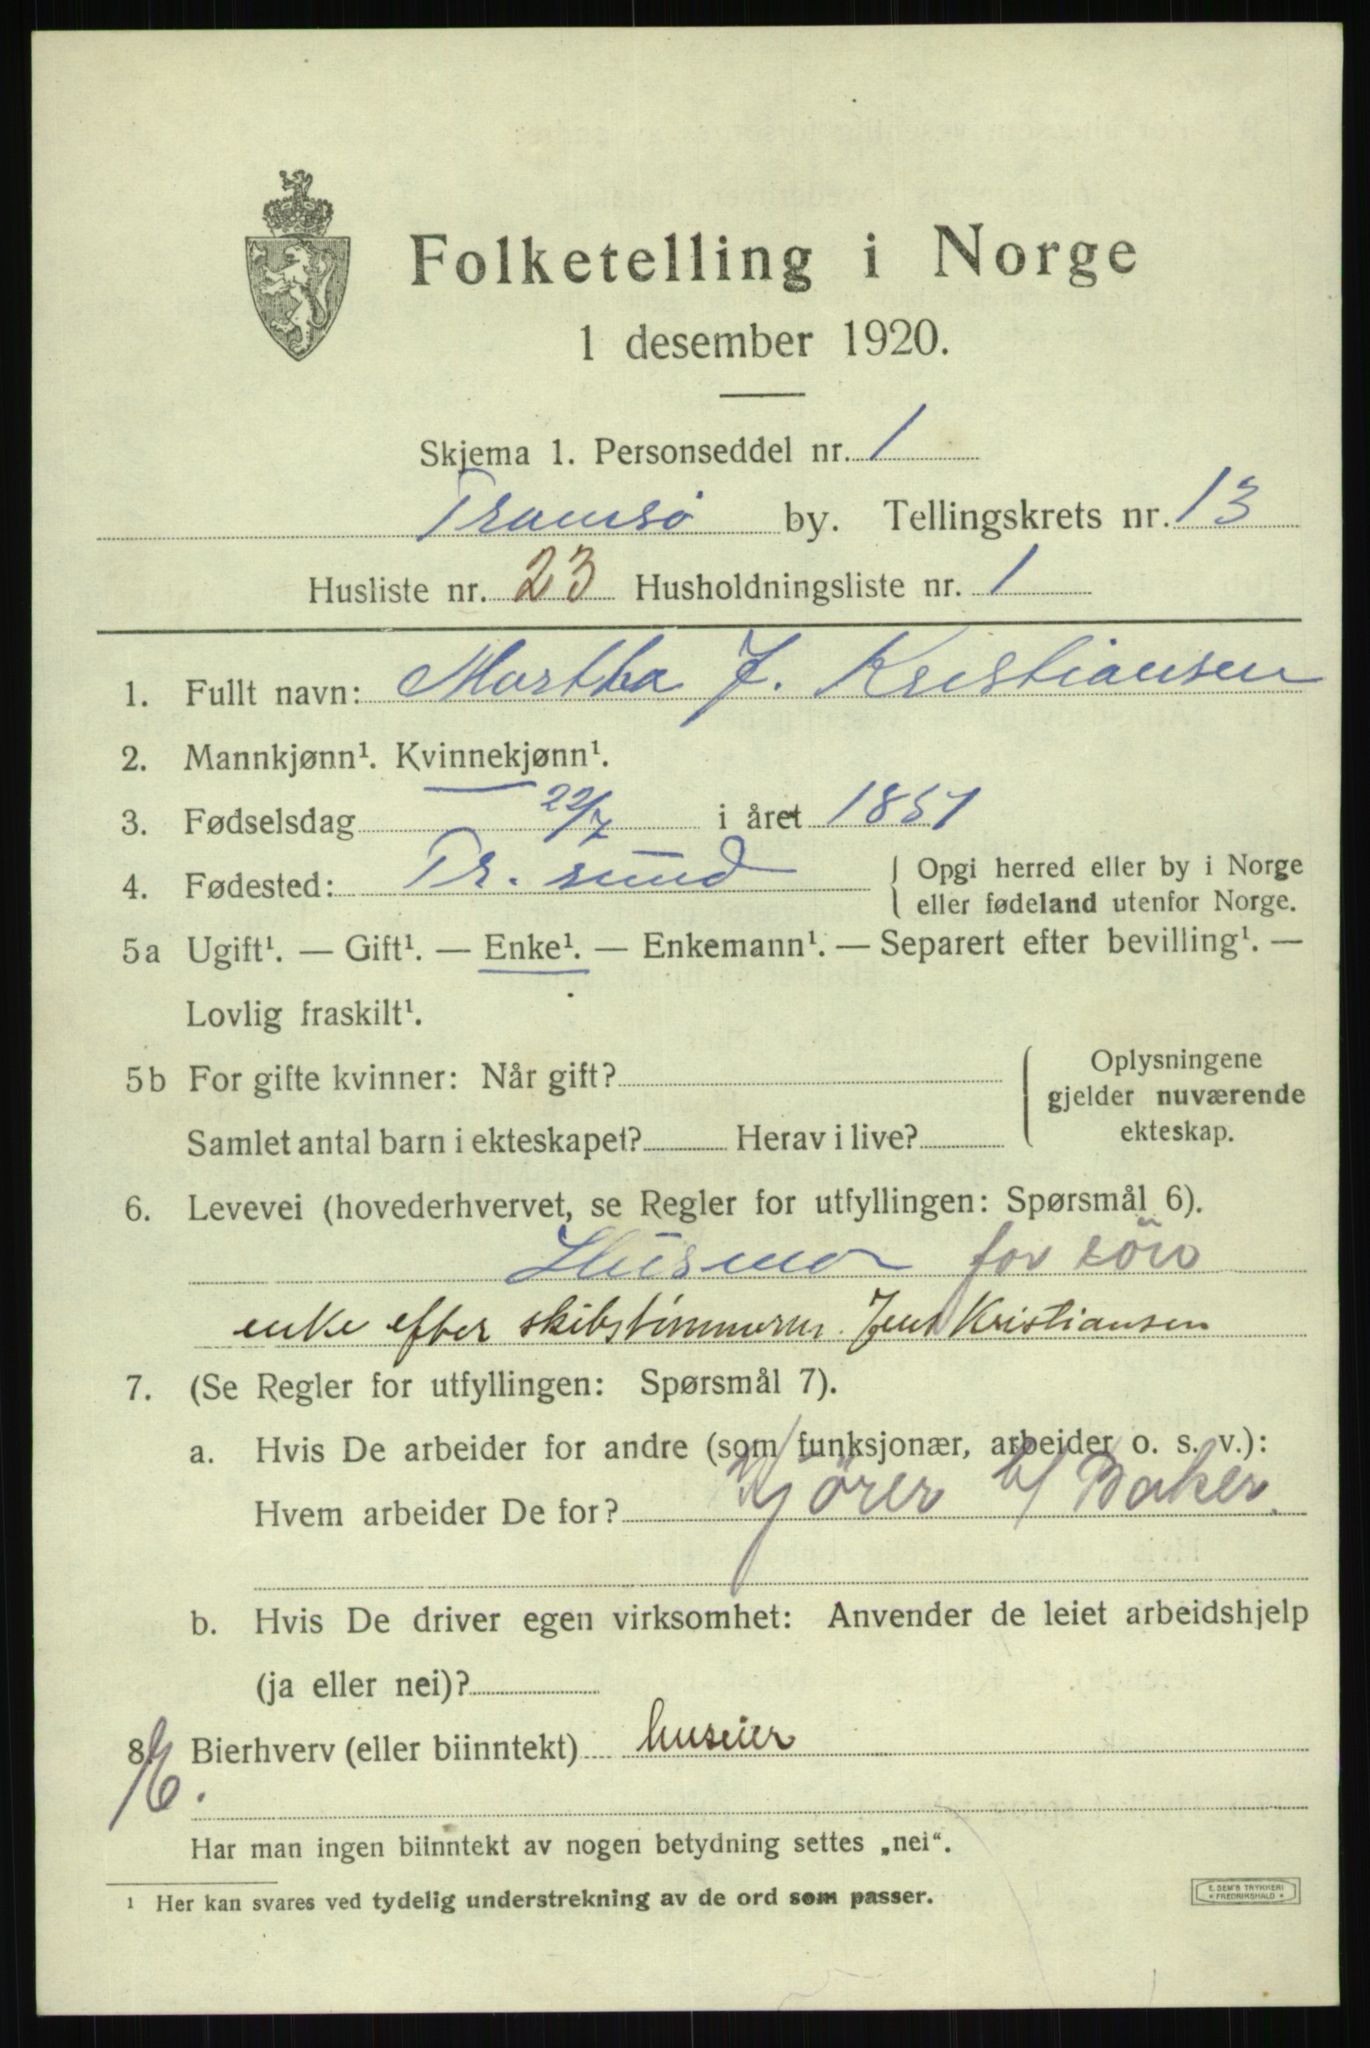 Folketelling i Norge
1 desember 1920.
Skjema 1. Personseddel nr. 1
Tromsø by. Tellingskrets nr. 13
Husliste nr. 23 Husholdningsliste nr. 1
1. Fullt navn: Martha J. Kristiansen
2. Mannkjønn¹. Kvinnekjønn¹.
3. Fødselsdag 22/7 i året 1851
4. Fødested: Tr. sund { Opgi herred eller by i Norge
eller fødeland utenfor Norge.
5a Ugift¹. — Gift¹. — Enke¹. — Enkemann¹. — Separert efter bevilling¹. —
Lovlig fraskilt¹.
5b For gifte kvinner: Når gift? { Oplysningene
gjelder nuværende
Samlet antal barn i ekteskapet? Herav i live? ekteskap.
6. Levevei (hovederhvervet, se Regler for utfyllingen: Spørsmål 6).
Husmor for
enke efter skibstømmerm. Jens Kristiansen
7. (Se Regler for utfyllingen: Spørsmål 7).
a. Hvis De arbeider for andre (som funksjonær, arbeider o. s. v.):
Hvem arbeider De for? Kjörer b/ Baker
b. Hvis De driver egen virksomhet: Anvender de leiet arbeidshjelp
(ja eller nei)?
8. Bierhverv (eller biinntekt) huseier
Har man ingen biinntekt av nogen betydning settes „nei“.
¹ Her kan svares ved tydelig understrekning av de ord som passer.
E. SEM'S TRYKKERI
* FREDRIKSHALD *